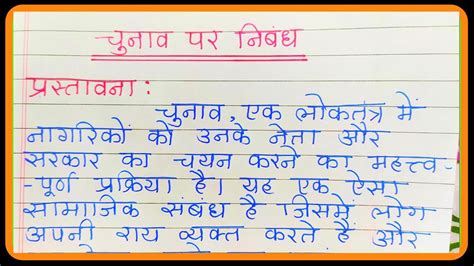 चुनाव पर निबंध
प्रस्तावना :
चुनाव, एक लोकतंत्र में
नागरिकों को उनके नेता और
सरकार का चयन करने का महत्त्व-
-पूर्ण प्रक्रिया है। यह एक ऐसा
सामाजिक संबंध है जिसमें लोग
अपनी राय व्यक्त करते हैं और